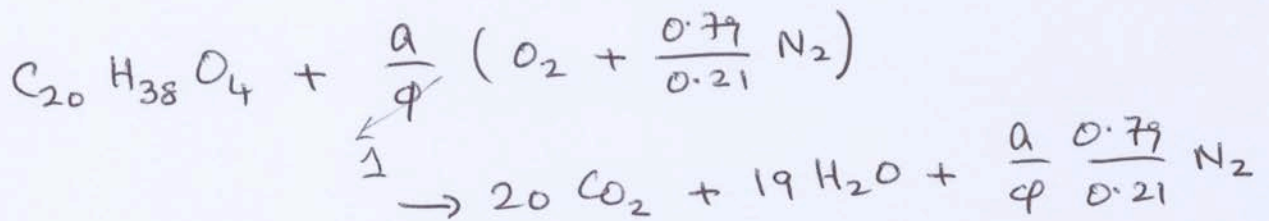 C₂₀ H₃₈ O₄ + a/φ ( O₂ + 0.79/0.21 N₂)
1
→ 20 CO₂ + 19 H₂O + a/φ 0.79/0.21 N₂